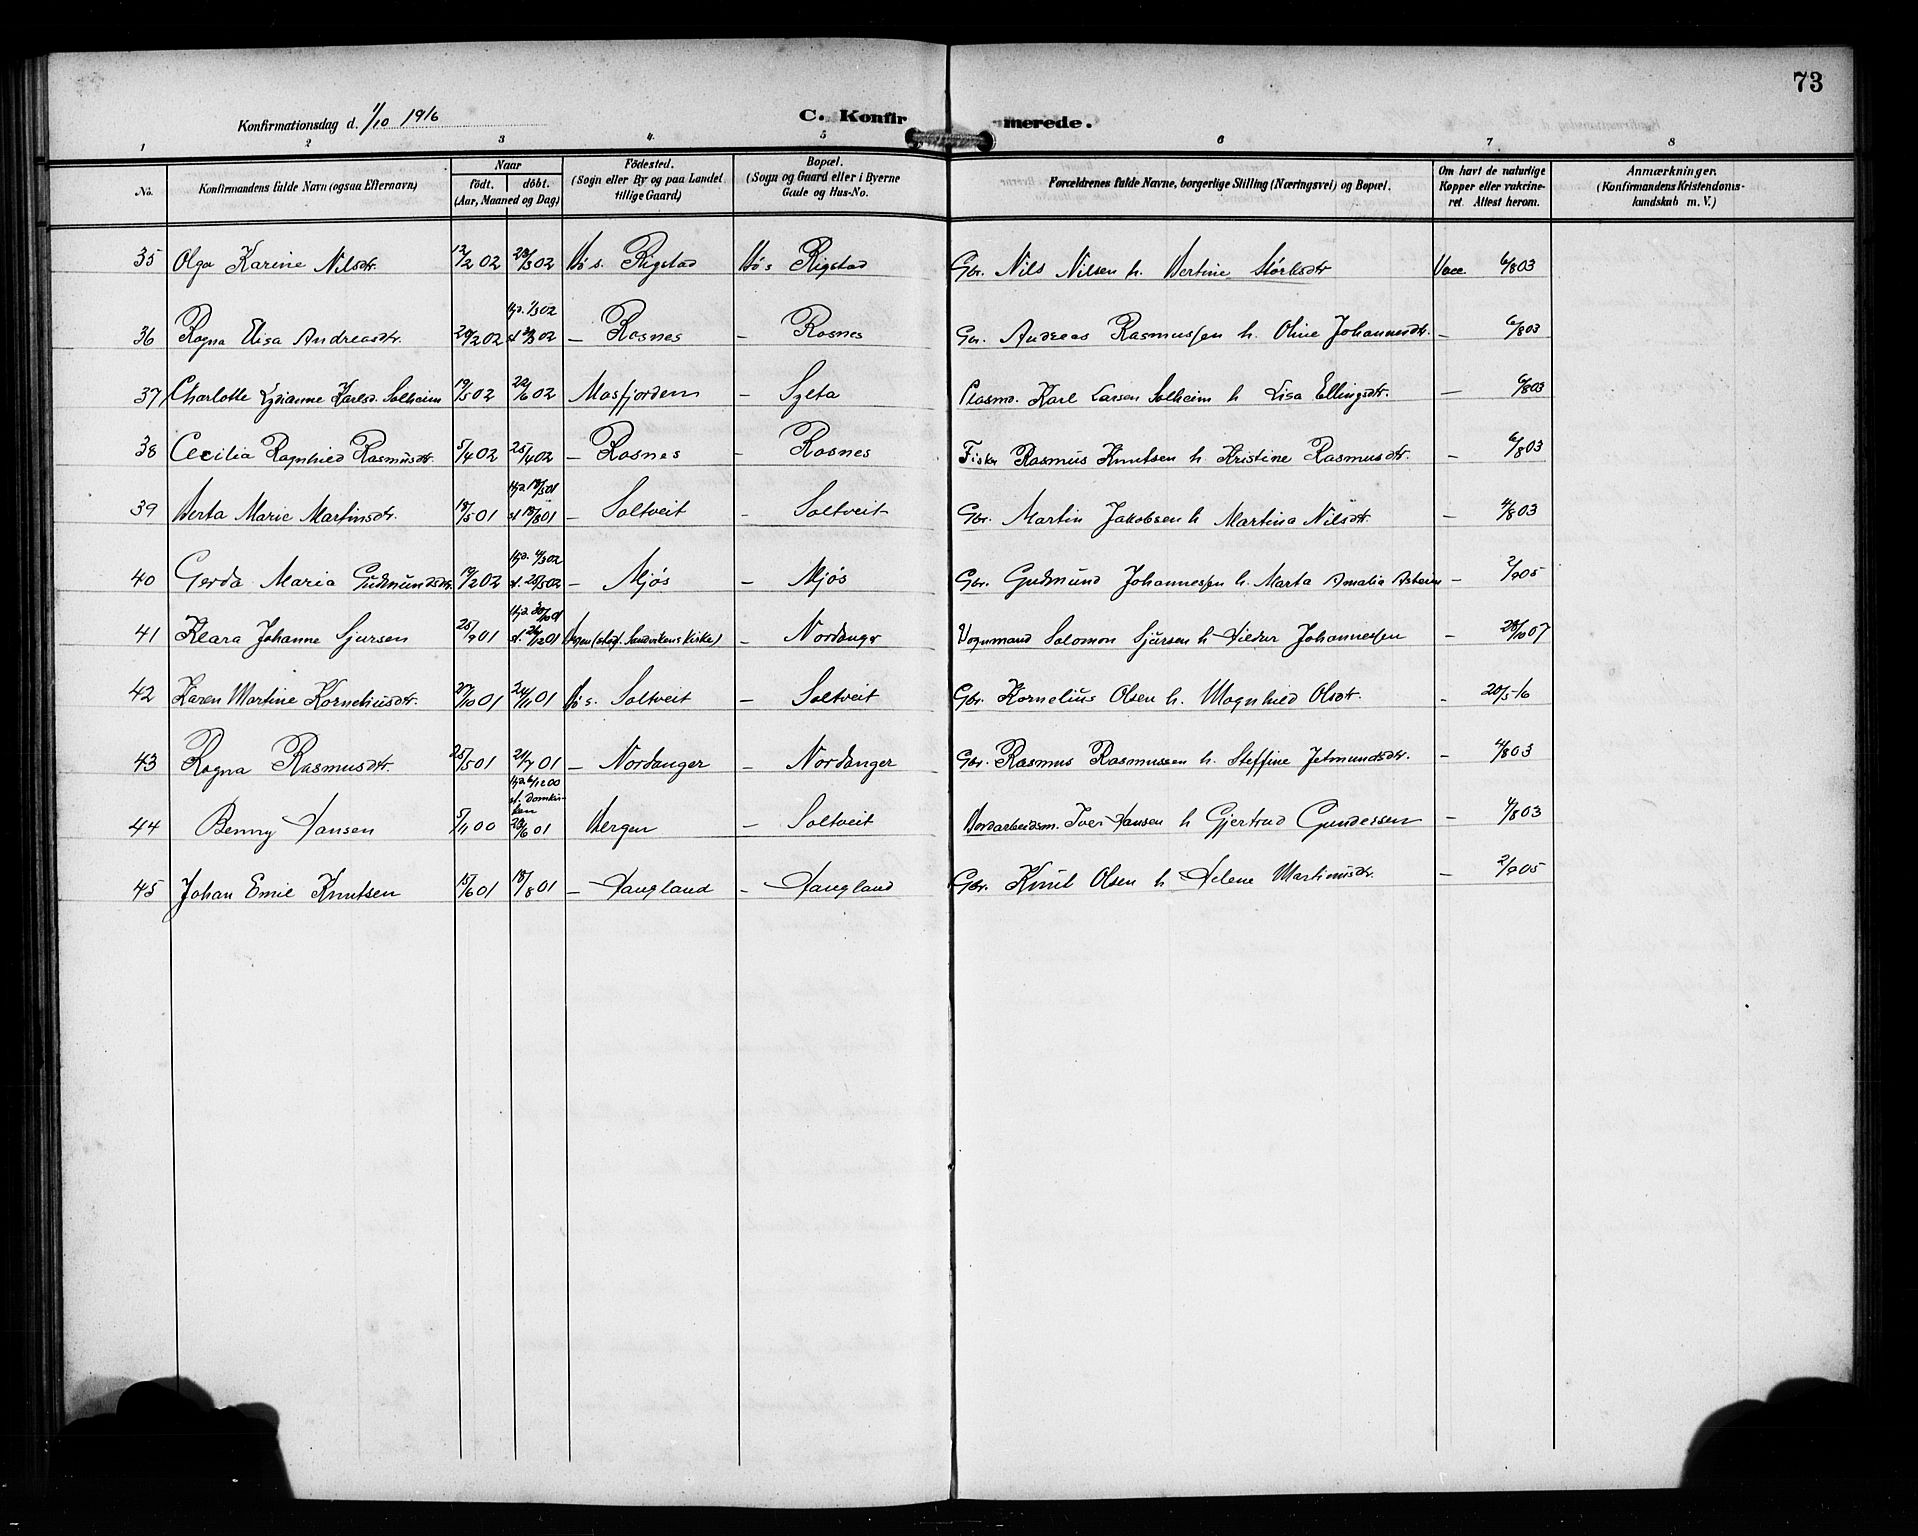 73
Konfirmationsdag d. 1/10 1916 C. Konfirmerede.
1 2 3 4 5 6 7 8
No. Konfirmandens fulde Navn (ogsaa Efternavn) Naar födt. döbt. (Aar, Maaned og Dag) Födested. (Sogn eller By og paa Landet tillige Gaard) Bopæl. (Sogn og Gaard eller i Byerne Gade og Hus-No. Forældrenes fulde Navne, borgerlige Stilling (Næringsvei) og Bopæl. Om havt de naturlige Kopper eller vakcineret. Attest herom. Anmærkninger. (Konfirmandens Kristendomskundskab m. V.)
35 Olga Karine Nilsdtr. 12/2 02 23/3 02 Bø s. Rigstad Bø s Rigstad Gbr. Nils Nilsen h. Bertine Størksdtr Vacc 6/8 03
hjd. 1/3 02
36 Ragna Elisa Andreasdtr. 20/2 02 — Rosnes — Rosnes Gbr. Andreas Rasmussen h. Oline Johannesdtr. — 6/8 03
37 Charlotte Lydianne Karlsd. Solheim 19/5 02 22/6 02 Masfjorden — Sylta Plasmd. Karl Larsen Solheim h Lisa Ellingsdtr. — 6/8 03
38 Cecilia Ragnhild Rasmusdtr. 5/4 02 25/4 02 — Rosnes — Rosnes Fisker Rasmus Knutsen h. Kristine Rasmusdtr. — 6/8 03
hjd. 18/5 01
39 Berta Marie Martinsdtr. 18/5 01 st 18/8 01 — Soltveit — Soltveit Gbr. Martin Jakobsen h Martina Nilsdtr. — 4/8 03
hjd. 4/3 02
40 Gerda Maria Gudmundsdtr. 19/2 02 st. 25/5 02 — Mjøs — Mjøs Gbr. Gudmund Johannessen h. Marta Amalia — 2/9 05
hjd. 30/10 01
41 Klara Johanne Sjursen 25/9 01 st. 26/12 01 Bergen (stad. Sandvikens Kirke) — Nordanger Vognmand Salomon Sjursen h Johannessen — 28/10 07
42 Karen Martine Korneliusdtr. 27/10 01 24/11 01 Bø s. Soltveit — Soltveit Gbr. Kornelius Olsen h. Magnhild Olsdtr. - 20/5-16
43 Ragna Rasmusdtr. 25/5 01 21/7 01 — Nordanger — Nordanger Gbr. Rasmus Rasmussen h. Steffine Jetmundsdtr. — 4/8 03
hjd. 6/12 00
st. Domkir-
ken
44 Benny Hansen 5/11 00 23/6 01 Bergen — Soltveit Bordarbeidsm. Iver Hansen h Gjertrud Gundersen — 4/8 03
45 Johan Emil Knutsen 15/6 01 18/8 01 — Haugland — Haugland Gbr. Knut Olsen h Helene Martinusdtr. — 2/9 05